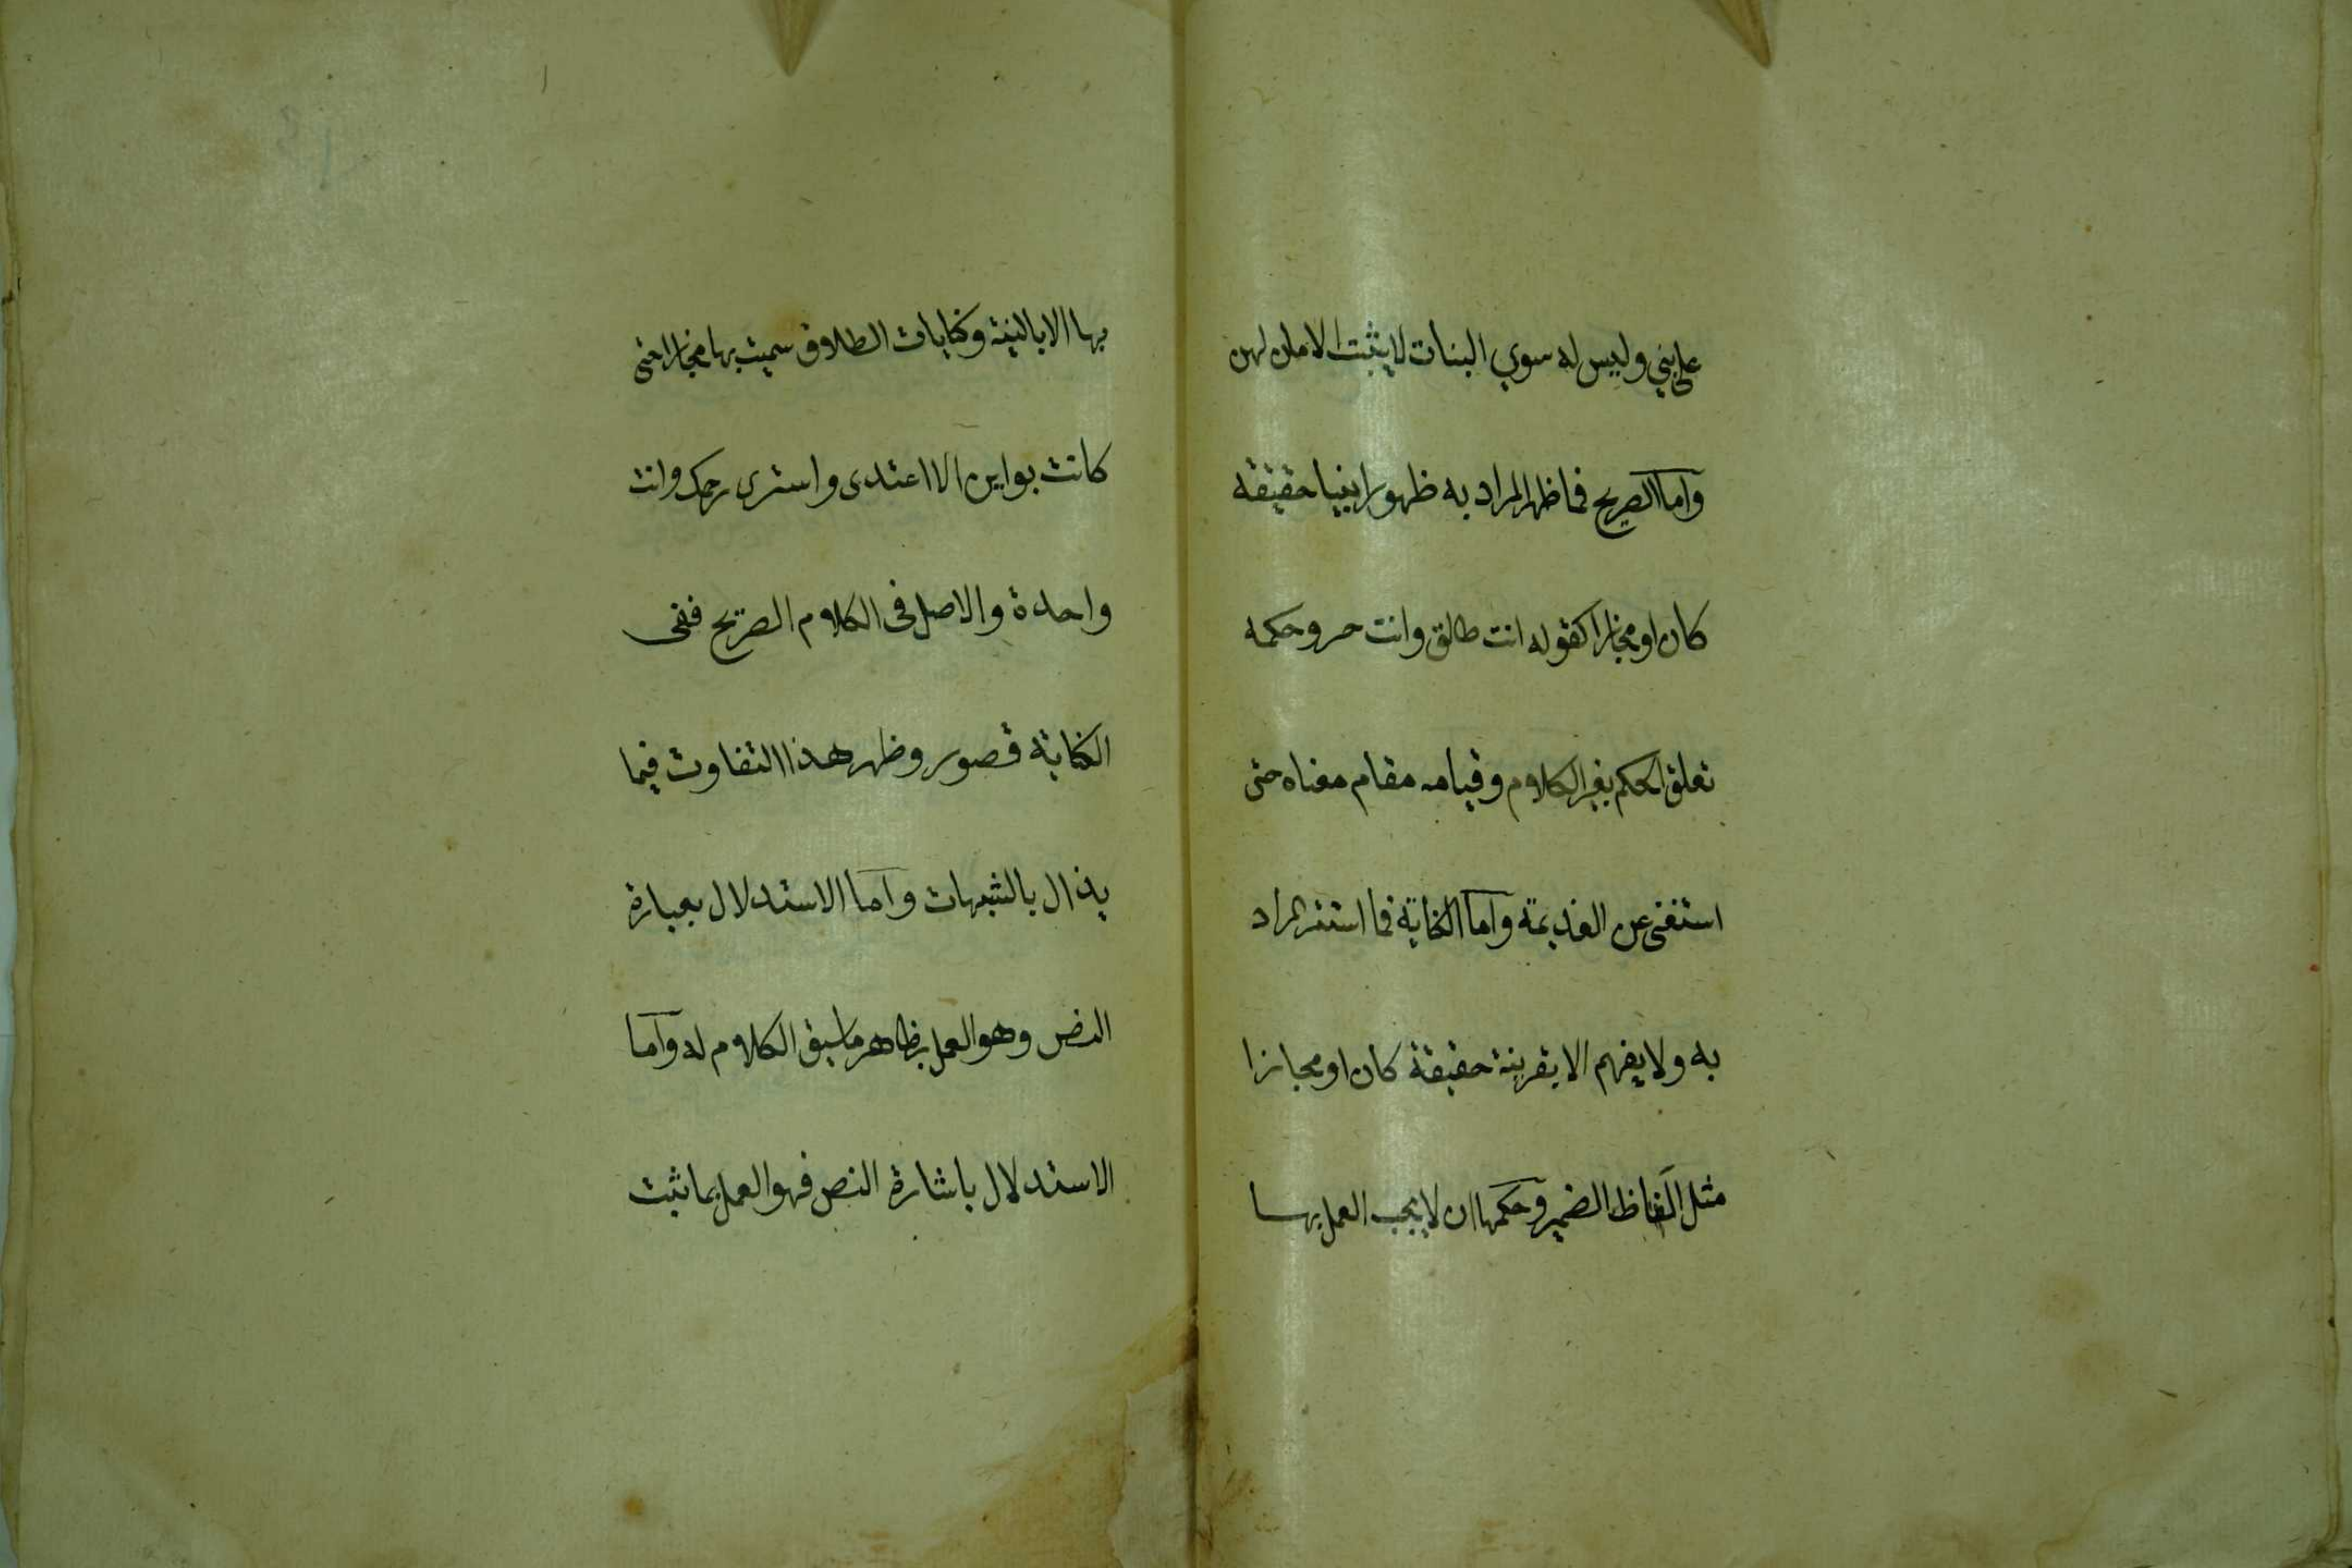 على بني وليس له سوي البنات لا يثبت الامان لهن
وأما الصريح فما ظهر المراد به ظهورا بينا حقيقة
كان او مجازا كقوله انت طالق وانت حر وحكمه
تعلق الحكم بغير الكلام وقيامه مقام معناه حتى
استغنى عن الغديمة وأما الكناية فما استتر المراد
به ولا يفهم الا بقرينة حقيقة كان او مجازا
مثل الفاظ الضمير وحكمها ان لا يجب العمل بها
بها الا بالنية وكنايات الطلاق سميت بها مجازا حتى
كانت بواين الا اعتدى واستبرى رحمك وانت
واحدة والاصل فى الكلام الصريح ففى
الكناية قصور وظهر هذا التفاوت فيما
يذال بالشبهات وأما الاستدلال بعبارة
النص وهو العمل بظاهر ما سيق الكلام له وأما
الاستدلال باشارة النص فهو العمل بما ثبت